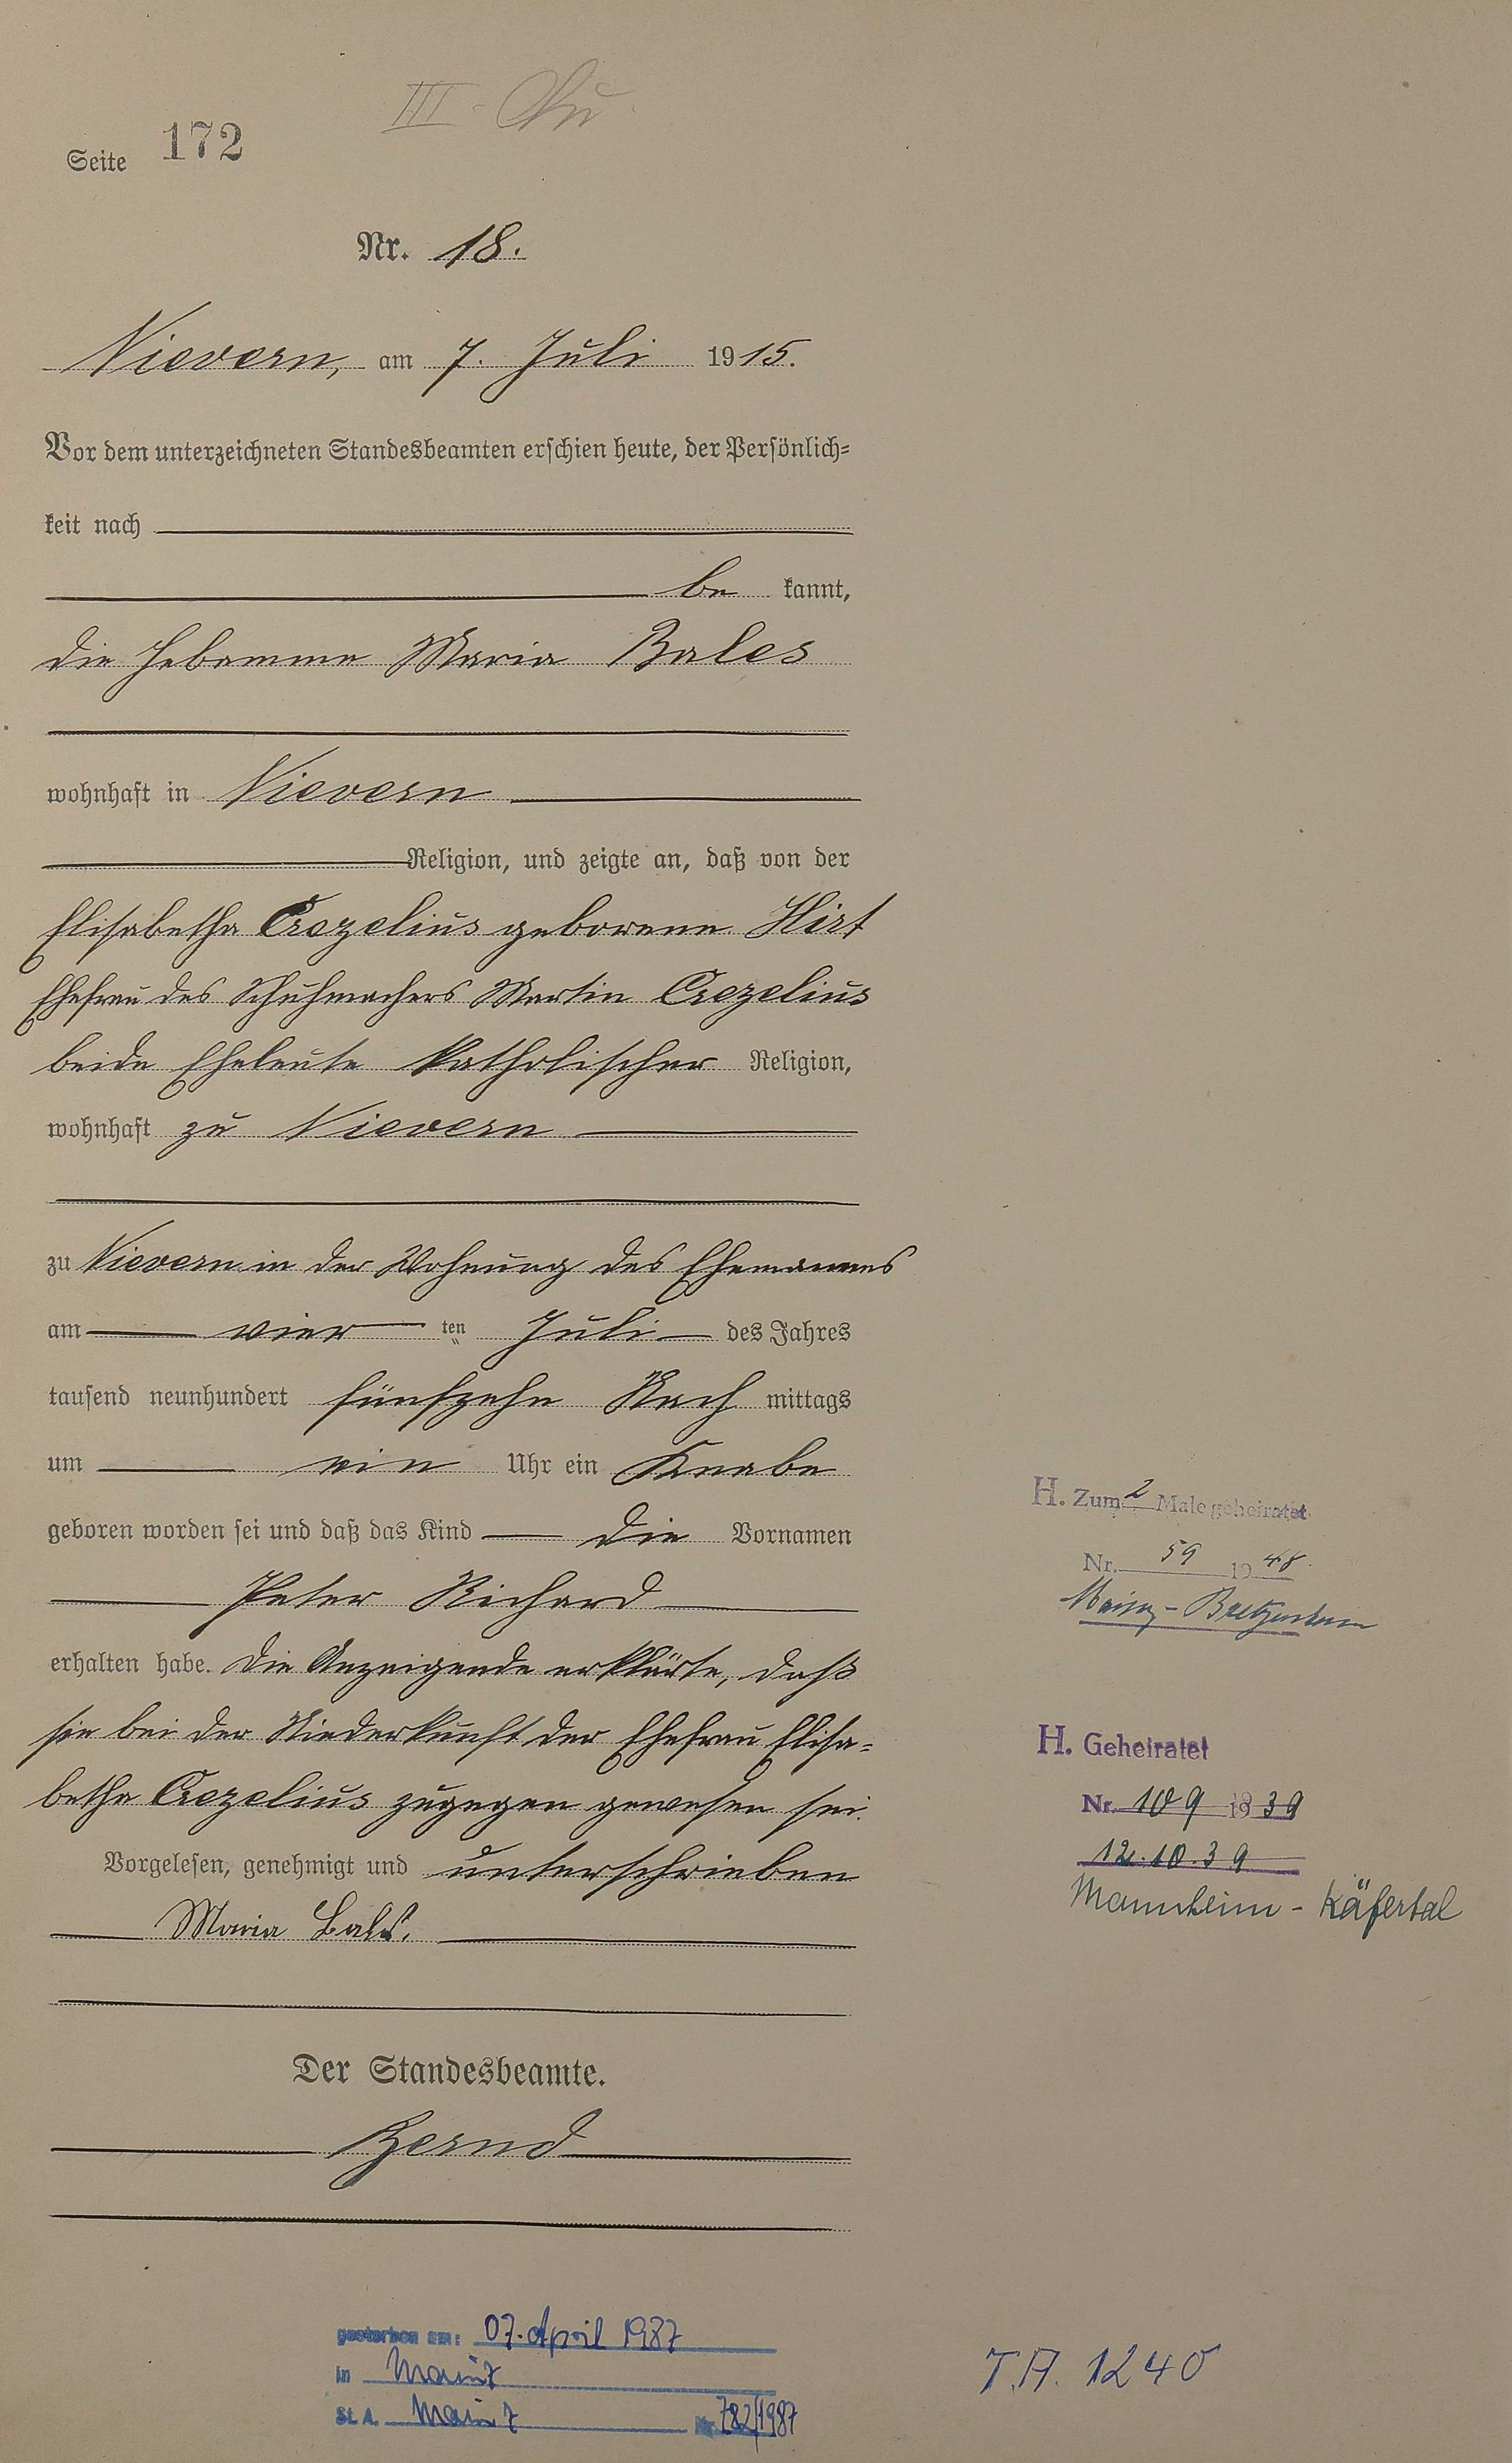 III
Seite 172
Nr. 18.
Nievern, am 7. Juli 1915.
Vor dem unterzeichneten Standesbeamten erschien heute, der Persönlich=
keit nach
be kannt,
die Hebamme Maria Bales
wohnhaft in Nievern
Religion, und zeigte an, daß von der
Elisabetha Crezelius geborene Hirt
Ehefrau des Schuhmachers Martin Crezelius
beide Eheleute katholischer Religion,
wohnhaft zu Nievern
zu Nievern in der Wohnung des Ehemannes
am vier ten Juli des Jahres
tausend neunhundert fünfzehn Nach mittags
um ein Uhr ein Knabe
geboren worden sei und daß das Kind die Vornamen
Peter Richard
erhalten habe. Die Anzeigende erklärte, daß
sie bei der Niederkunft der Ehefrau Elisa=
betha Crezelius zugegen gewesen sei.
Vorgelesen, genehmigt und unterschrieben
Maria Bales.
Der Standesbeamte.
Bernd
H. Zum 2 Male geheiratet
Nr. 59 1948
Mainz-Bretzenheim
H. Geheiratet
Nr. 109 1939
12.10.39
Mannheim - Käfertal
gestorben am: 07. April 1987
in Mainz
St. A. Mainz Nr. 782/1987
T.A. 1240